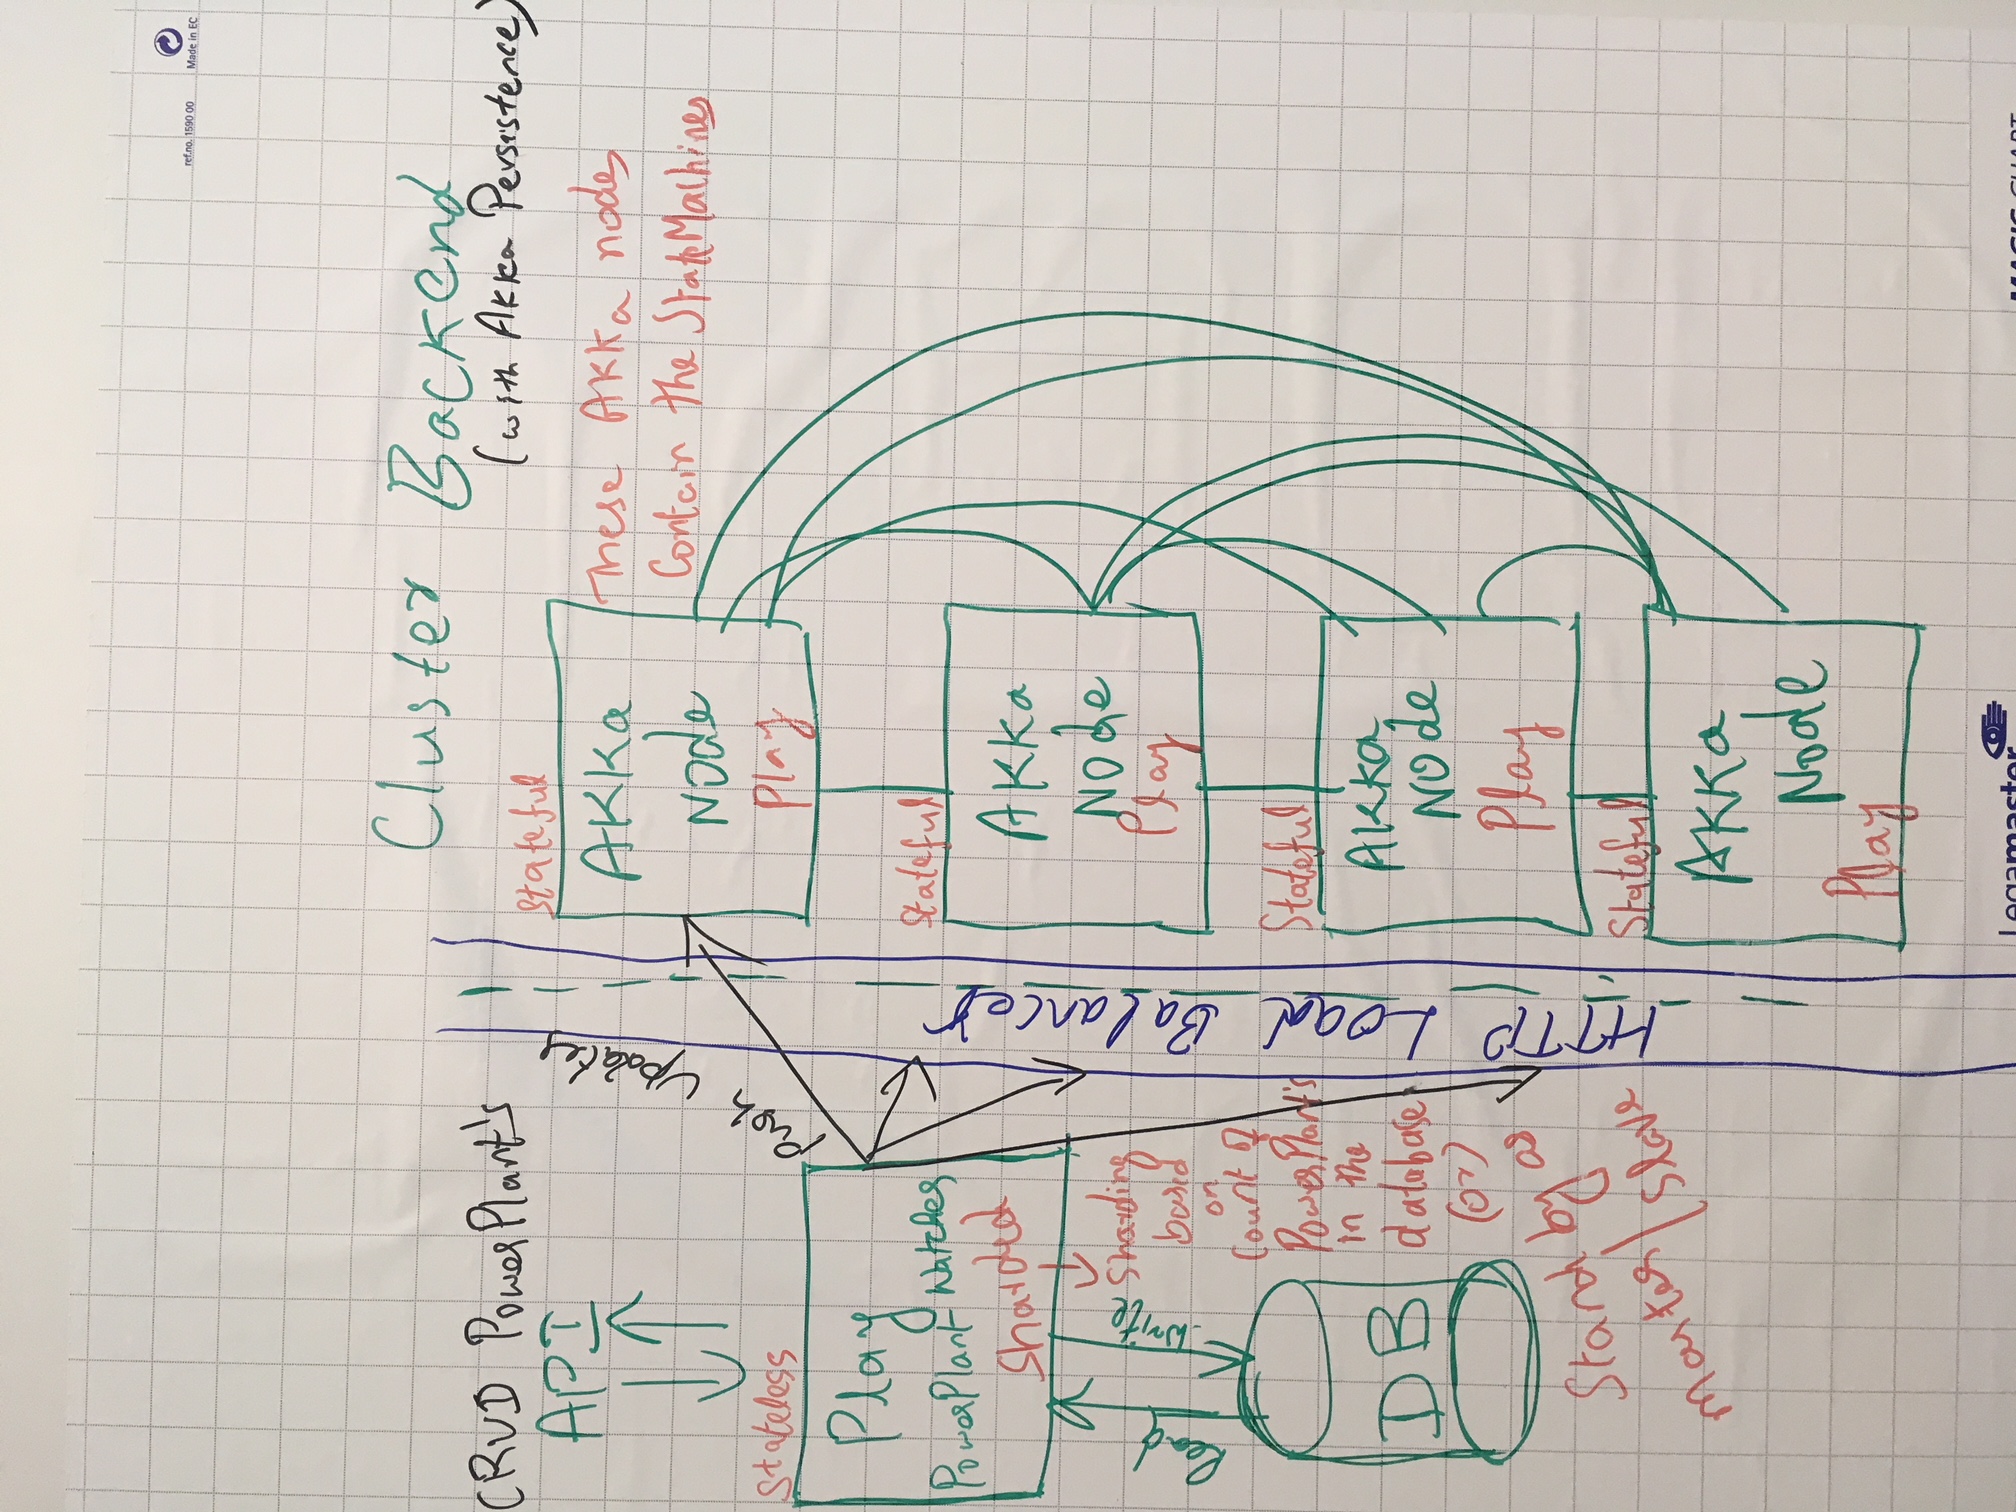 ref.no. 1590 00
Made in EC
Cluster Backend
(with Akka Persistence)
CRUD PowerPlant's
API
Stateless
Play
PowerPlant Watches
Sharded
Sharding
based
on
Count of
PowerPlant's
in the
database
(or)
Stand by as
master/slave
Read
write
DB
Push Updates
HTTP Load Balancer
Stateful
AKKa
Node
Play
These Akka nodes
Contain the StateMachines
Stateful
AKKa
Node
Play
Stateful
AKKa
Node
Play
Stateful
AKKa
Node
Play
Legamaster
MAGIC CHART